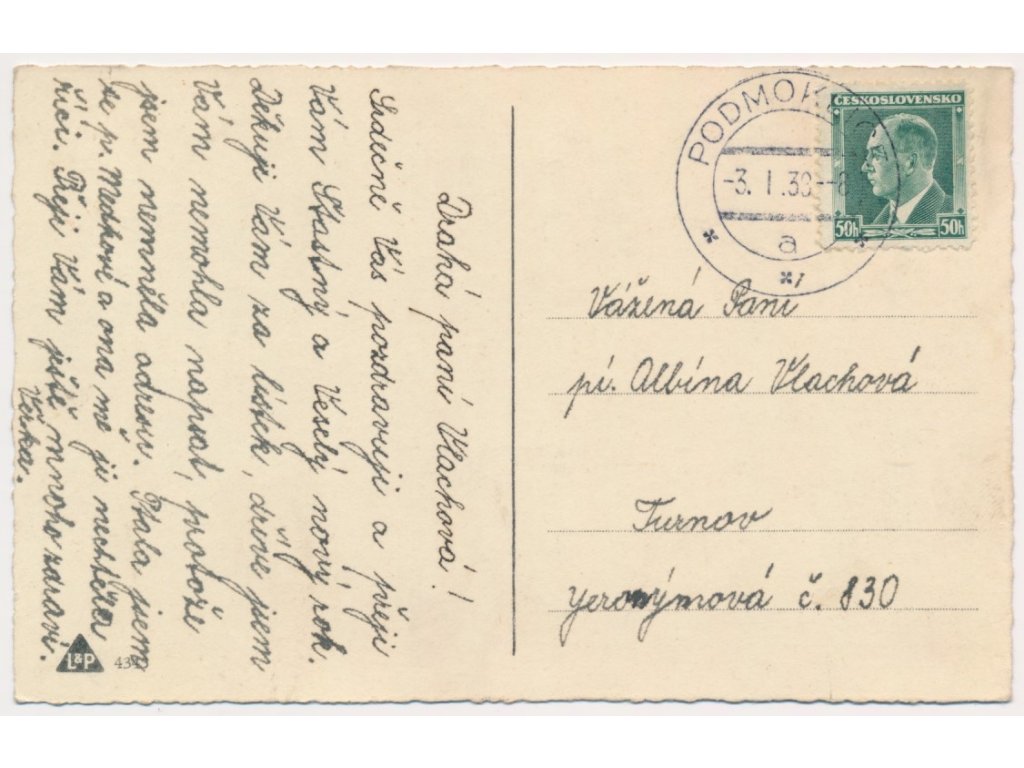 Drahá paní Vlachová!
Srdečně Vás pozdravuji a přeji
Vám Šťastný a Veselý nový rok.
Děkuji Vám za lístek, dříve jsem
Vám nemohla napsat, protože
jsem neměla adresu. Ptala jsem
se p. Medkové a ona mě ji nechtěla
říci. Přeji Vám ještě mnoho zdraví.
Věrka.
L&P
PODMOKLY
-3. I. 38.-8
a
ČESKOSLOVENSKO
50h 50h
Vážená Paní
pí. Albína Vlachová
Turnov
Jeronýmová č. 830